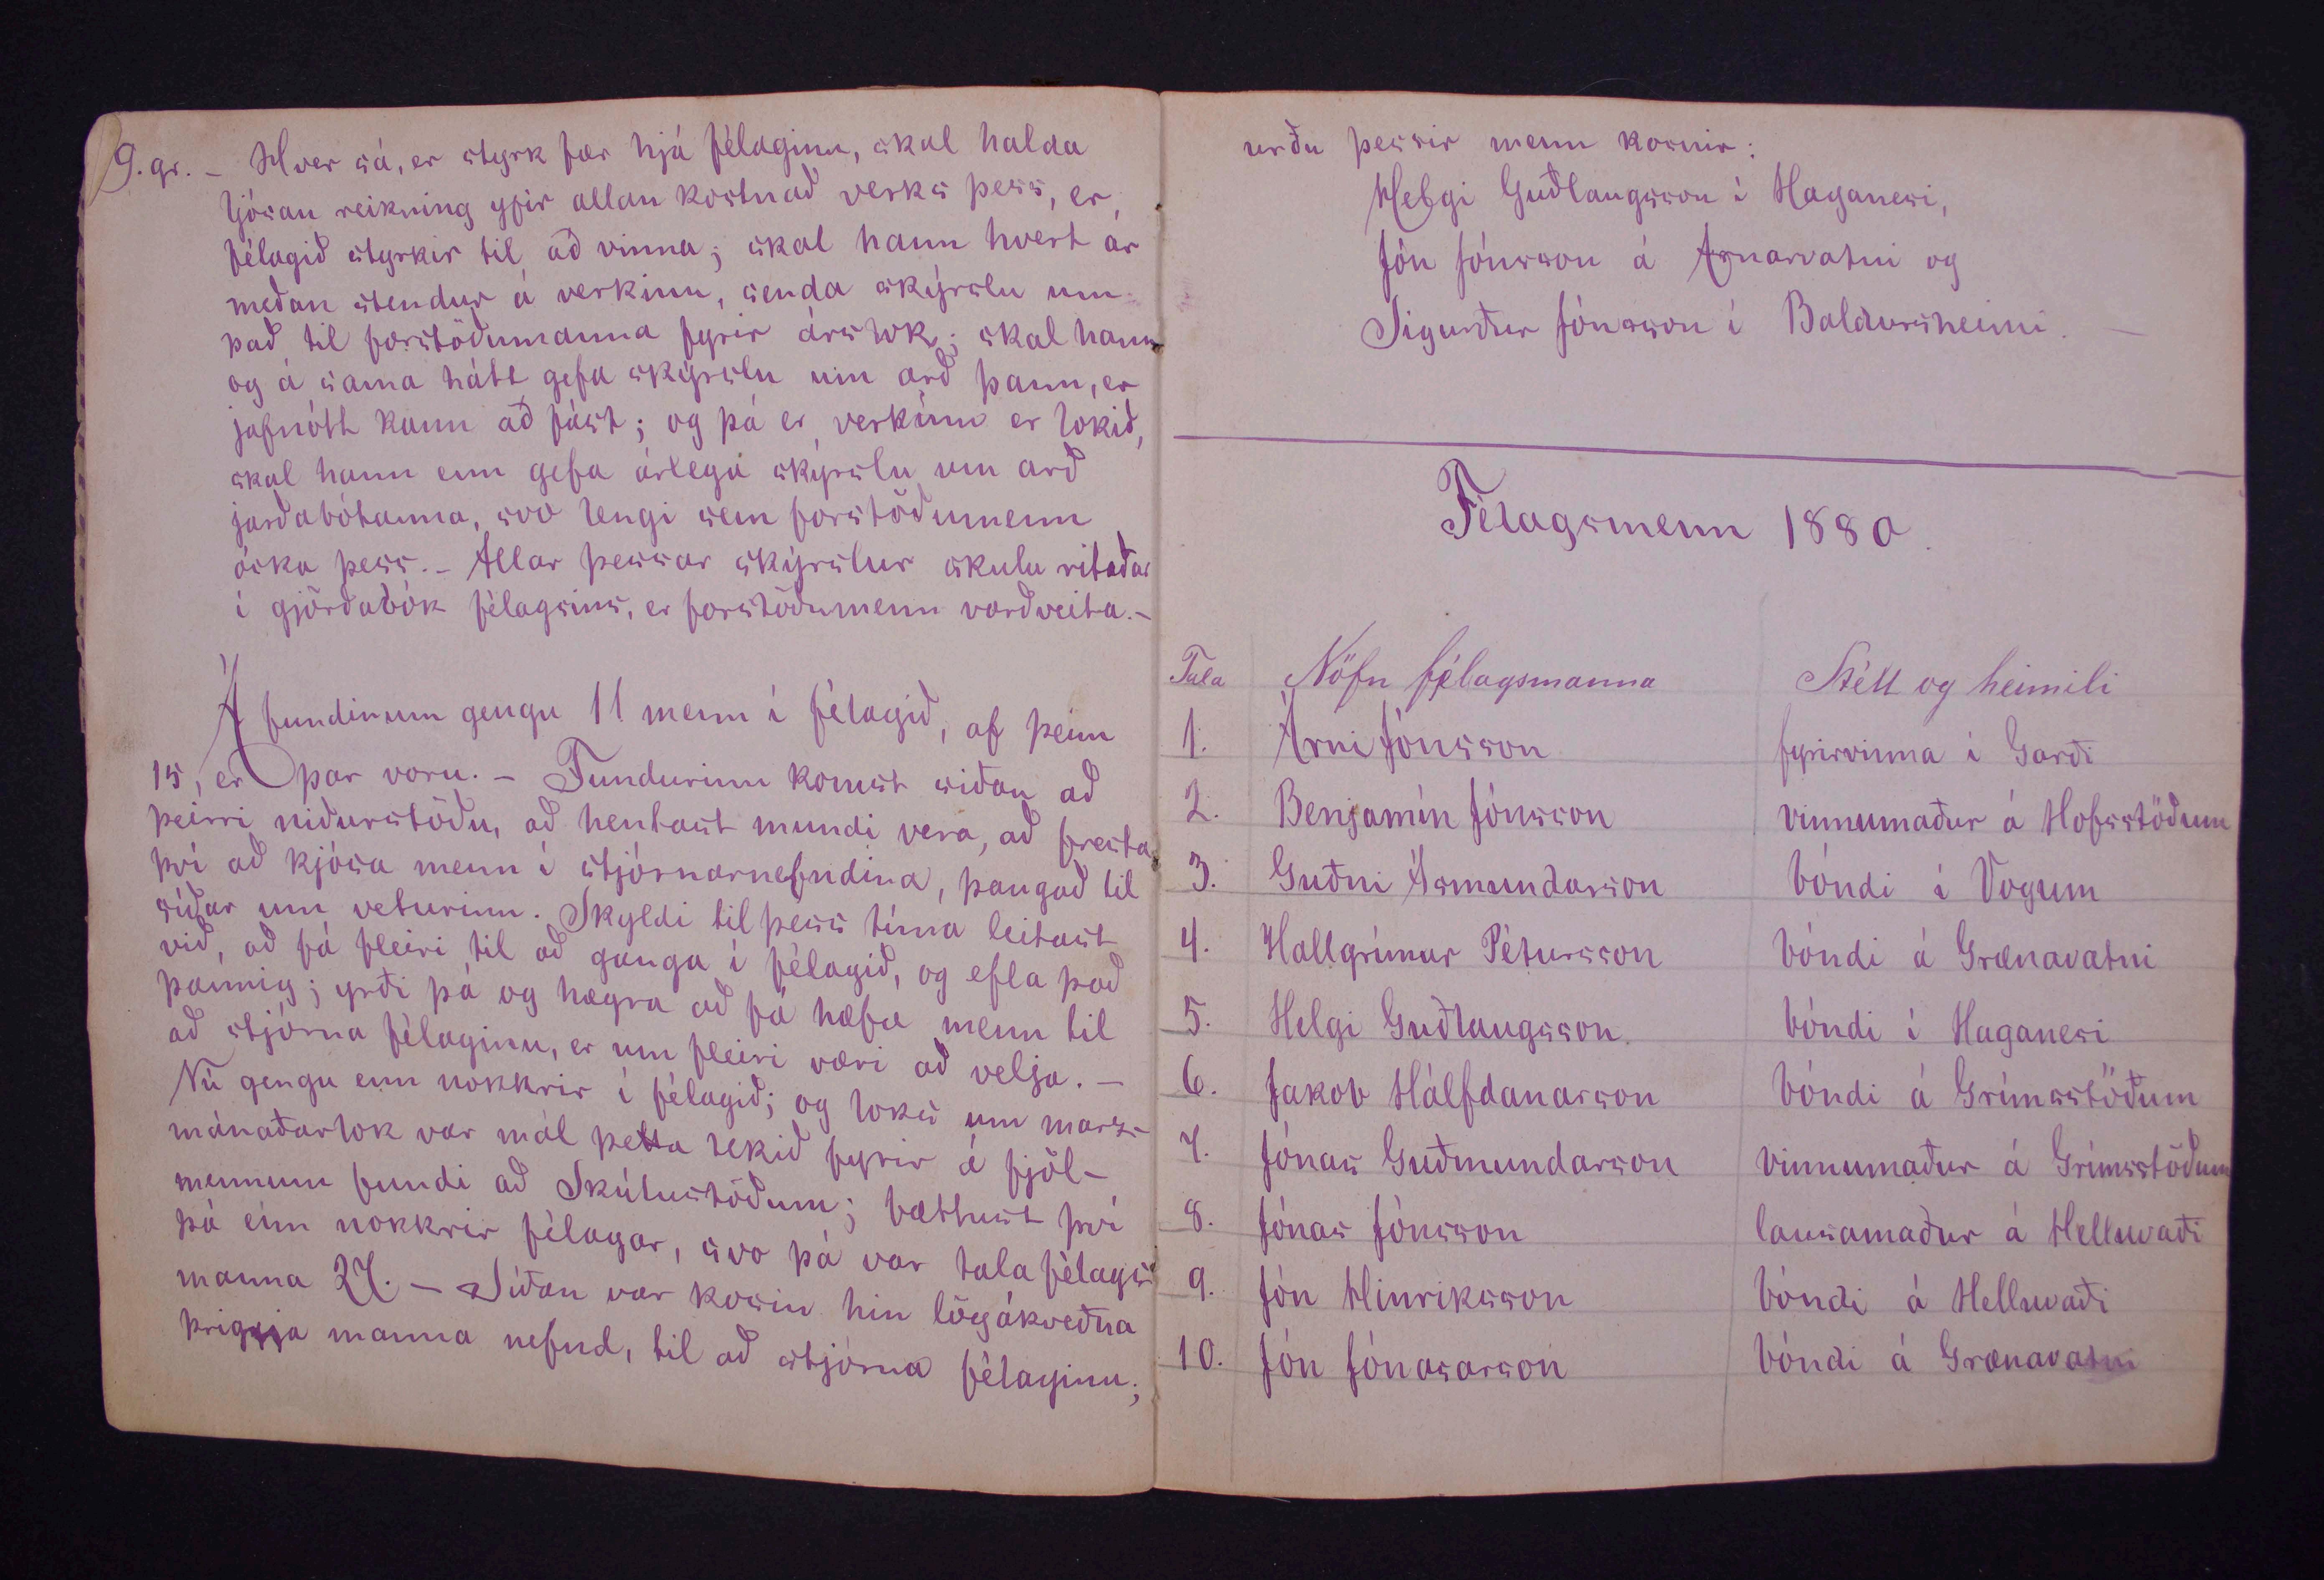 9. gr. - Hver sá, er styrk fær hjá félaginu, skal halda
ljósan reikning yfir allan kostnað verks þess, er
félagið styrkir til að vinna; skal hann hvert ár
meðan stendur á verkinu, senda skýrslu um
það til forstöðumanna fyrir árslok; skal hann
og á sama hátt gefa skýrslu um arð þann, er
jafnótt kann að fást; og þá er verkinu er lokið,
skal hann enn gefa árlega skýrslu um arð
jarðabótanna, svo lengi sem forstöðumenn
óska þess. - Allar þessar skýrslur skulu ritaðar
í gjörðabók félagsins, er forstöðumenn varðveita. -
Á fundinum gengu 11 menn í félagið, af þeim
15, er þar voru. - Fundurinn komst síðan að
þeirri niðurstöðu, að hentast mundi vera, að fresta
því að kjósa menn í stjórnarnefndina, þangað til
síðar um veturinn. Skyldi til þess tíma leitast
við, að fá fleiri til að ganga í félagið, og efla það
þannig; yrði þá og hægra að fá hæfa menn til
að stjórna félaginu, er um fleiri væri að velja. -
Nú gengu enn nokkrir í félagið; og loks um marz-
mánaðarlok var mál þetta tekið fyrir á fjöl-
mennum fundi að Skútustöðum; bættust því
þá enn nokkrir félagar, svo þá var tala félags
manna 27. - Síðan var kosin hin lögákveðna
þriggja manna nefnd, til að stjórna félaginu;
urðu þessir menn kosnir:
Helgi Guðlaugsson í Haganesi,
Jón Jónsson á Arnarvatni og
Sigurður Jónsson í Baldursheimi. -
Félagsmenn 1880.
Tala Nöfn félagsmanna Stétt og heimili
1. Árni Jónsson fyrirvinna í Garði
2. Benjamín Jónsson vinnumaður á Hofsstöðum
3. Guðni Ásmundarson bóndi í Vogum
4. Hallgrímur Pétursson bóndi á Grænavatni
5. Helgi Guðlaugsson. bóndi í Haganesi
6. Jakob Hálfdanarson bóndi á Grímsstöðum
7. Jónas Guðmundarson vinnumaður á Grímsstöðum
8. Jónas Jónsson lausamaður á Helluvaði
9. Jón Hinriksson bóndi á Helluvaði
10. Jón Jónasarson bóndi á Grænavatni